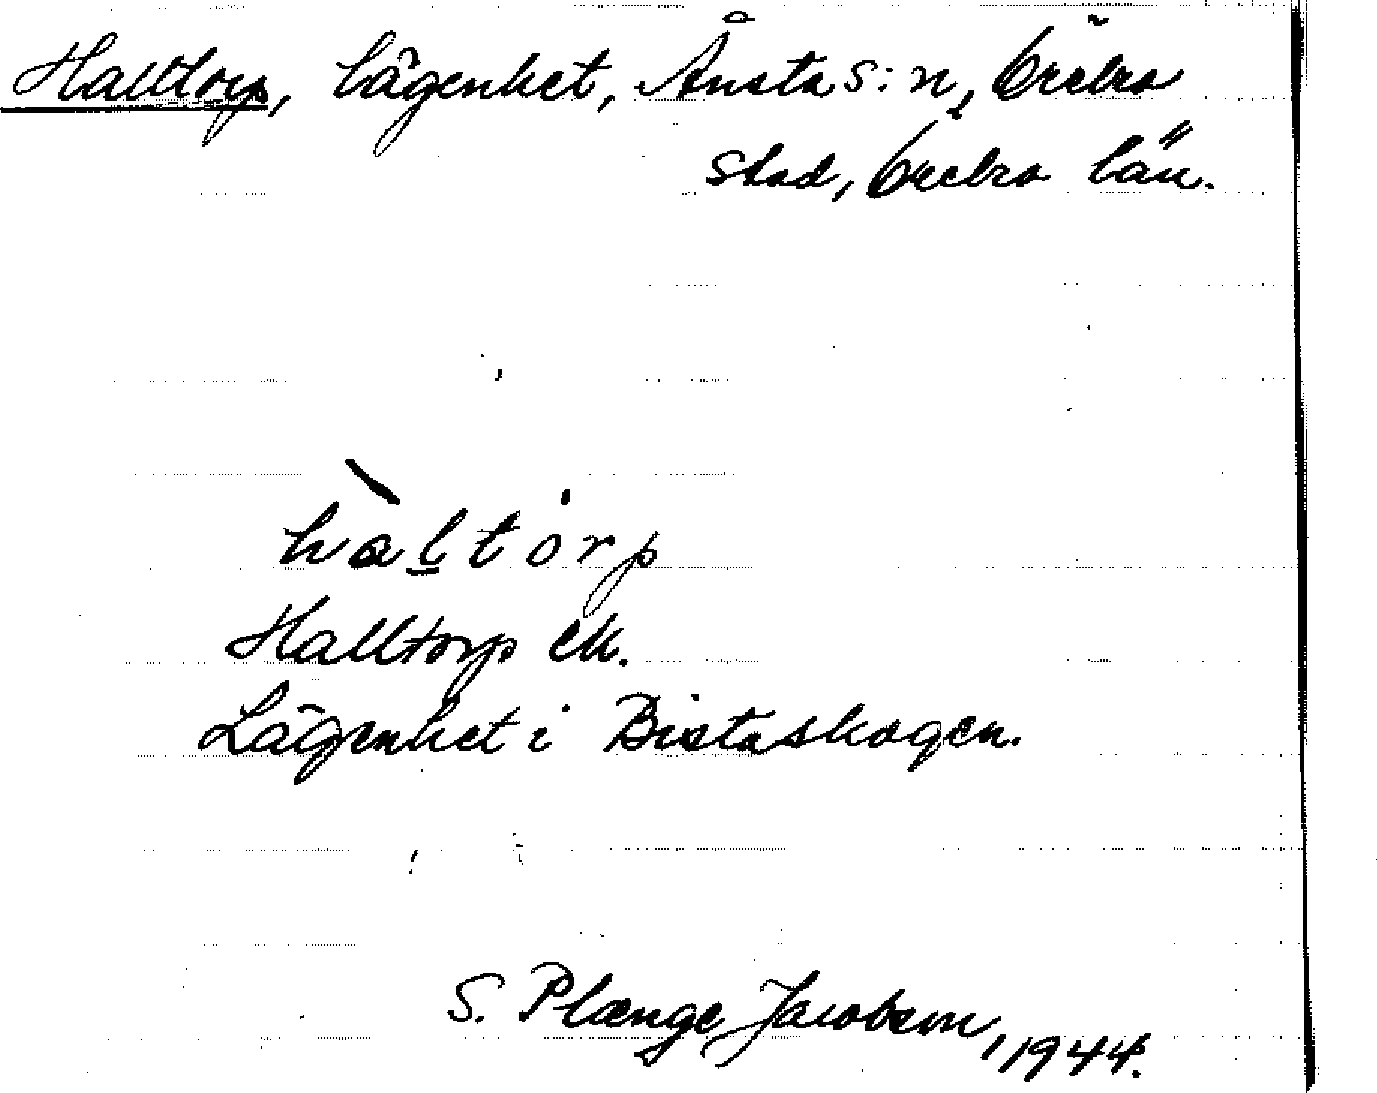 Halltorp, lägenhet, Ånsta s:n, Örebro
stad, Örebro län.
hàltȯrp
Halltorp ek.
Lägenhet i Bistaskogen.
S. Plænge Jacobson, 1944.